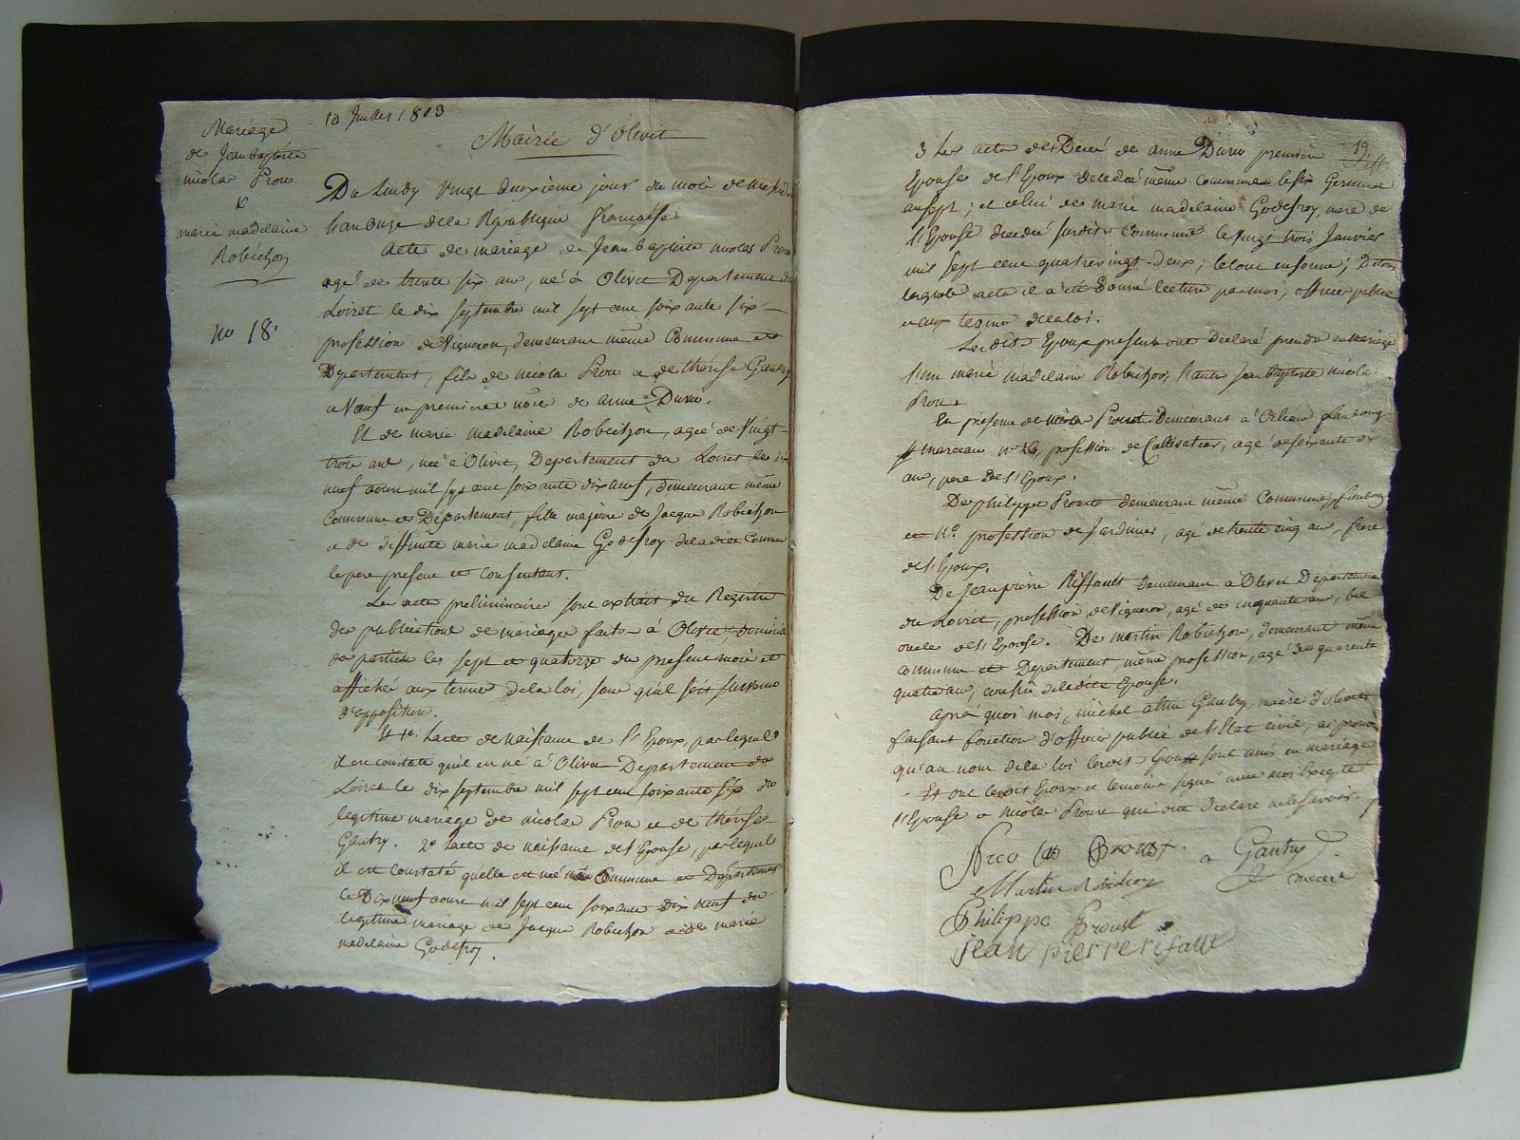 10 Juillet 1803
Mairie d'Olivet
Mariage
de Jean baptiste
nicolas Prou
&
marie madelaine
Robichon
no 18.
Du Lundy Vingt deuxième jour du mois de
l'an onze de la Republique française
Acte de mariage de Jean Baptiste nicolas Prou
agé de trente six ans, né à Olivet Departement du
Loiret le dix septembre mil sept cent soixante six
profession de Vigneron, demeurant même Commune et
Departement, fils de nicolas Prou et de thérèse Gautry
et Veuf en premiere noce de anne Duru.
Et de marie madelaine Robichon, agée de Vingt
trois ans, née à Olivet, Departement du Loiret le dix
neuf aoust mil sept cent soixante dix neuf, demeurant même
Commune et Departement, fille majeure de Jacque Robichon
et de deffunte marie madelaine Godefroy de la dite Commune
le pere present et consentent.
Les actes preliminaires sont extraits du Registre
des publications de mariages faites à Olivet,
les sept et quatorze du present mois et
affiché aux termes de la loi, sans qu'il soit survenu
d'opposition.
Et 1º. l'acte de naissance de l'Epoux, par lequel
il est constaté qu'il est né à Olivet Departement du
Loiret le dix septembre mil sept cent soixante six du
legitime mariage de nicolas Prou et de thérèse
Gautry. 2º l'acte de naissance de l'Epouse, par lequel
il est constaté qu'elle est née Commune et Departement
le Dix neuf aoust mil sept cent soixante dix neuf du
legitime mariage de Jacque Robichon et de marie
madelaine Godefroy.
19
3 Les actes de Decé de anne Duru premiere
Epouse de l'Epoux de la dé même commune le six Germinal
an sept; et celui de marie madelaine Godefroy, mere de
l'Epouse decedé susdite Commune le vingt trois Janvier
mil sept cent quatre vingt deux; le tout en forme; De tous
lesquels actes il a été donné lecture par moi, officier public
aux termes de la loi.
Lesdits Epoux presents ont declaré prendre en mariage
l'un marie madelaine Robichon, l'autre Jean baptiste nicolas
Prou.
En presence de nicolas Proust demeurant à Orléans faubourg
St marceau nº 26, profession de agé de soixante et
ans, pere de l'Epoux.
De philippe Proust demeurant même Commune, faubourg
et Nº. profession de Jardinier, agé de trente cinq ans, frere
de l'Epoux.
De Jean pierre Riffault demeurant a Olivet Departement
du Loiret, profession de Vigneron, agé de cinquante ans,
oncle de l'Epouse. De martin Robichon, demeurant même
commune et Departement, même profession, agé de quarente
quatre ans, cousin de ladite Epouse.
Après quoi moi, michel Gautry, maire d'olivet
faisant fonction d'officier public de l'Etat civil, ai prononcé
qu'au nom de la loi lesdits Epoux sont unis en mariage
Et ont lesdits Epoux et temoins signé avec moi Excepté
l'Epouse et nicolas Proust qui ont declaré ne le savoir.
Nicolas Proust
Gautry
maire
Martin Robichon
Philippe Proust
jean pierre rifault